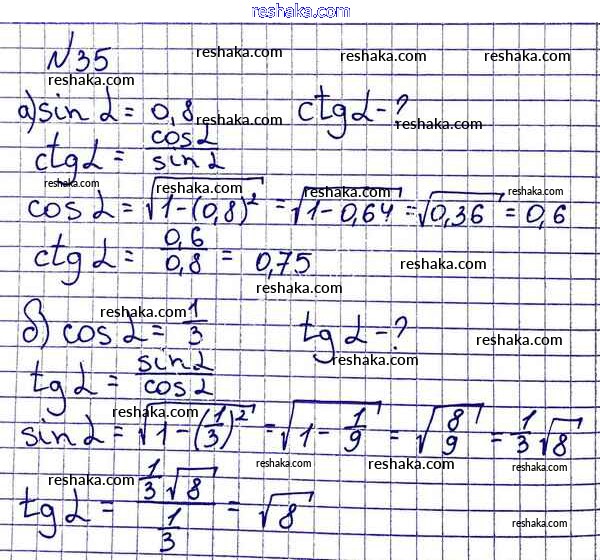 reshaka.com
№35 reshaka.com reshaka.com reshaka.com
reshaka.com
а) sin α = 0,8 reshaka.com ctg α - ?
reshaka.com
ctg α = cos α / sin α
reshaka.com reshaka.com reshaka.com
cos α = √(1-(0,8)²) = √(1-0,64) = √0,36 = 0,6
reshaka.com reshaka.com
ctg α = 0,6 / 0,8 = 0,75 reshaka.com
reshaka.com
reshaka.com
б) cos α = 1/3 tg α - ? reshaka.com
reshaka.com
tg α = sin α / cos α
reshaka.com reshaka.com reshaka.com
sin α = √(1-(1/3)²) = √(1-1/9) = √(8/9) = 1/3 √8
reshaka.com reshaka.com reshaka.com
tg α = 1/3 √8 / 1/3 = √8
reshaka.com reshaka.com reshaka.com